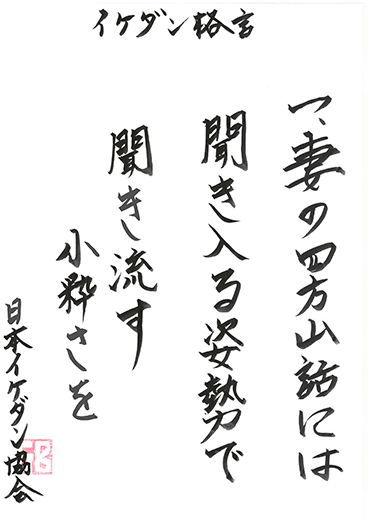 イケダン格言
一、妻の四方山話には
聞き入る姿勢で
聞き流す
小粋さを
日本イケダン協会